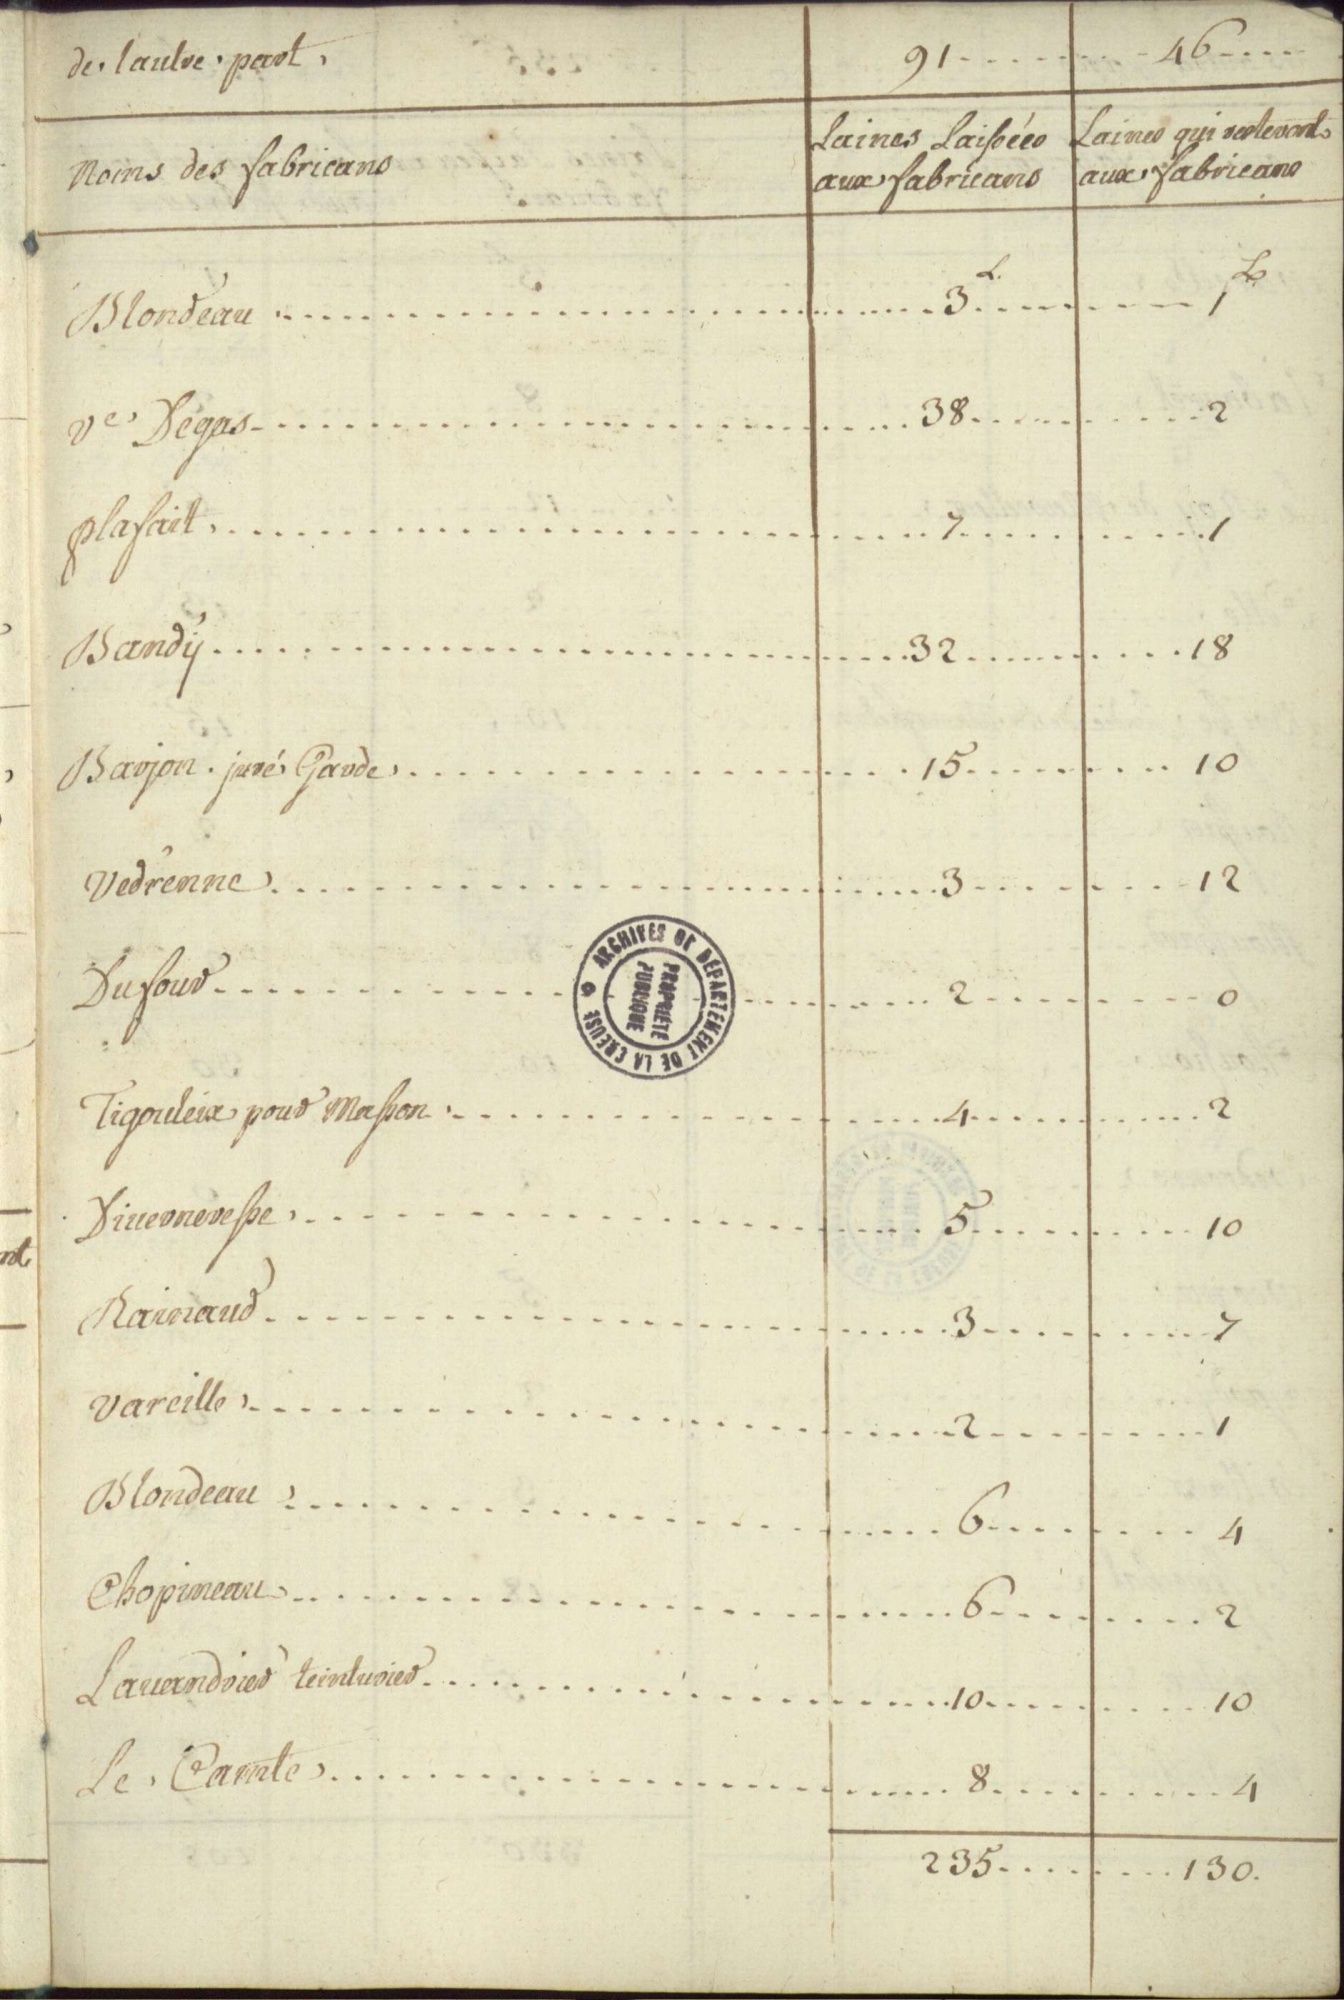 de lautre part, 91 46
Noms des fabricans
Laines Laissées aux fabricans
Laines qui restevont aux fabricans
L. L
Blondeau 3 1
Ve Degas 38 2
plafait 7 1
Bandÿ 32 18
Barjon juré Garde 15 10
Vedrenne 3 12
Dufour 2 0
ARCHIVES DU DÉPARTEMENT DE LA CREUSE
PROPRIÉTÉ
PUBLIQUE
Tigouleix pour Masson 4 2
Diverneresse 5 10
Rainaud 3 7
Vareille 2 1
Blondeau 6 4
Chopineau 6 2
Lavandrier teinturier 10 10
Le Comte 8 4
235 130.